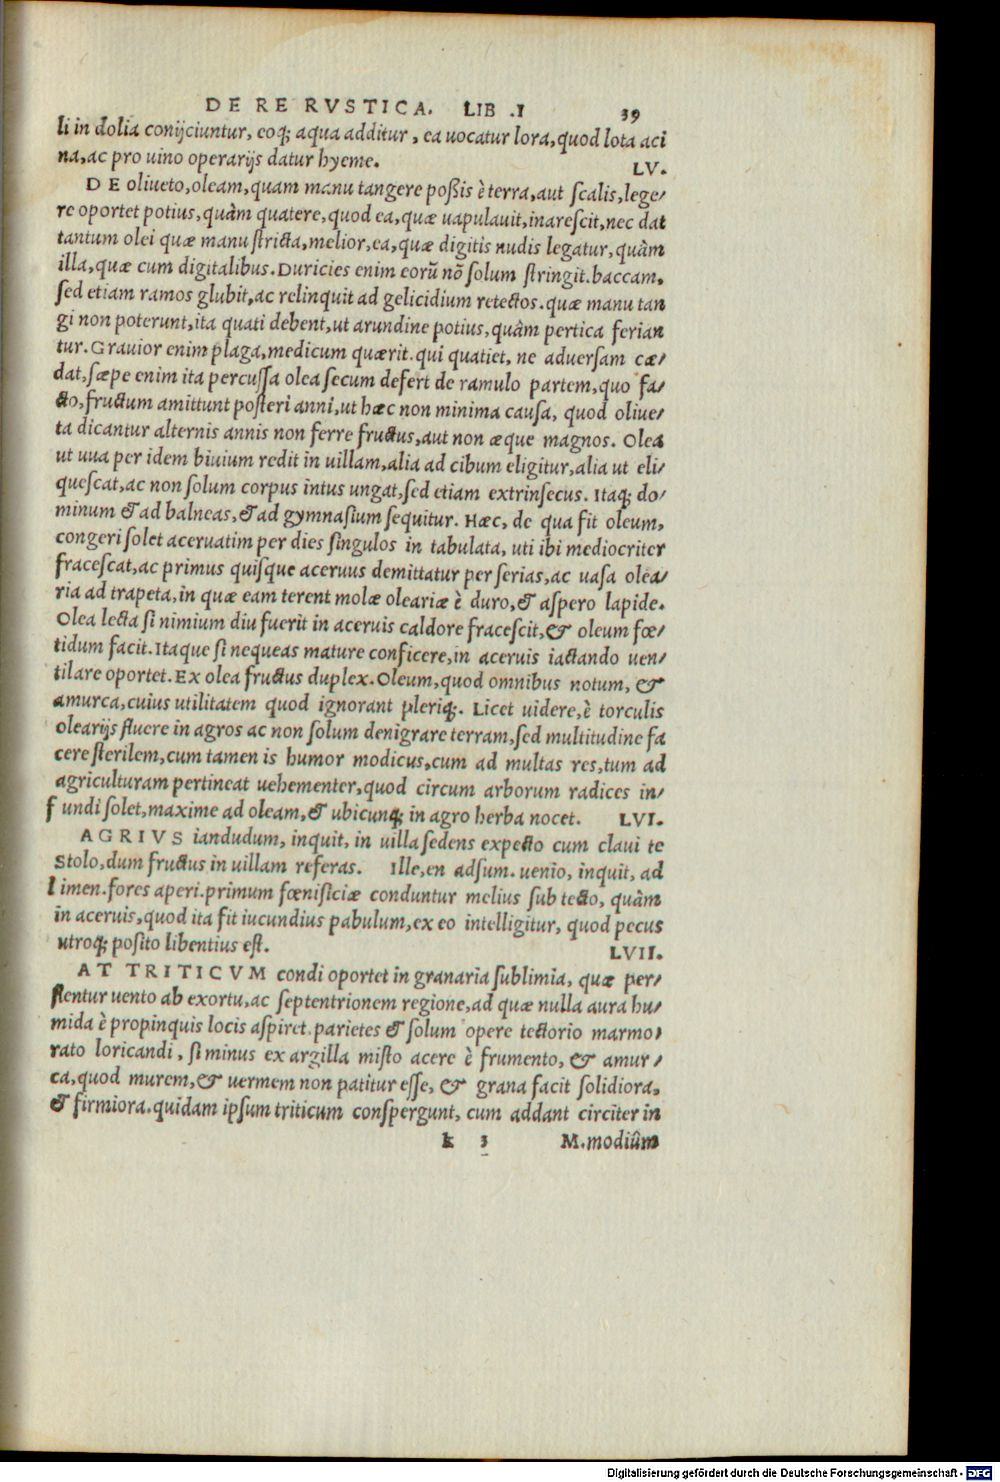 DE RE RVSTICA. LIB .I 39
li in dolia conijciuntur, eoq; aqua additur, ea uocatur lora, quod lota aci
na, ac pro uino operarijs datur hyeme.
LV.
DE oliueto, oleam, quam manu tangere poßis è terra, aut scalis, lege/
re oportet potius, quàm quatere, quod ea, quæ uapulauit, inarescit, nec dat
tantum olei quæ manu stricta, melior, ea, quæ digitis nudis legatur, quàm
illa, quæ cum digitalibus. Duricies enim eorū nō solum stringit. baccam,
sed etiam ramos glubit, ac relinquit ad gelicidium retectos. quæ manu tan
gi non poterunt, ita quati debent, ut arundine potius, quàm pertica ferian
tur. Grauior enim plaga, medicum quærit. qui quatiet, ne aduersam cæ/
dat, sæpe enim ita percussa olea secum defert de ramulo partem, quo fa/
cto, fructum amittunt posteri anni, ut hæc non minima causa, quod oliue/
ta dicantur alternis annis non ferre fructus, aut non æque magnos. Olea
ut uua per idem biuium redit in uillam, alia ad cibum eligitur, alia ut eli/
quescat, ac non solum corpus intus ungat, sed etiam extrinsecus. Itaq; do/
minum & ad balneas, & ad gymnasium sequitur. Hæc, de qua fit oleum,
congeri solet aceruatim per dies singulos in tabulata, uti ibi mediocriter
fracescat, ac primus quisque aceruus demittatur per serias, ac uasa olea/
ria ad trapeta, in quæ eam terent molæ oleariæ è duro, & aspero lapide.
Olea lecta si nimium diu fuerit in aceruis caldore fracescit, & oleum fœ/
tidum facit. Itaque si nequeas mature conficere, in aceruis iactando uen/
tilare oportet. Ex olea fructus duplex. Oleum, quod omnibus notum, &
amurca, cuius utilitatem quod ignorant pleriq;. Licet uidere, è torculis
olearijs fluere in agros ac non solum denigrare terram, sed multitudine fa
cere sterilem, cum tamen is humor modicus, cum ad multas res, tum ad
agriculturam pertineat uehementer, quod circum arborum radices in/
fundi solet, maxime ad oleam, & ubicunq; in agro herba nocet. LVI.
AGRIVS iandudum, inquit, in uilla sedens expecto cum claui te
Stolo, dum fructus in uillam referas. Ille, en adsum. uenio, inquit, ad
limen. fores aperi. primum fœnisiciæ conduntur melius sub tecto, quàm
in aceruis, quod ita fit iucundius pabulum, ex eo intelligitur, quod pecus
utroq; posito libentius est.
LVII.
AT TRITICVM condi oportet in granaria sublimia, quæ per/
flentur uento ab exortu, ac septentrionem regione, ad quæ nulla aura hu/
mida è propinquis locis aspiret. parietes & solum opere tectorio marmo/
rato loricandi, si minus ex argilla misto acere è frumento, & amur/
ca, quod murem, & uermem non patitur esse, & grana facit solidiora,
& firmiora. quidam ipsum triticum conspergunt, cum addant circiter in
k 3 M. modiûm
Digitalisierung gefördert durch die Deutsche Forschungsgemeinschaft - DFG